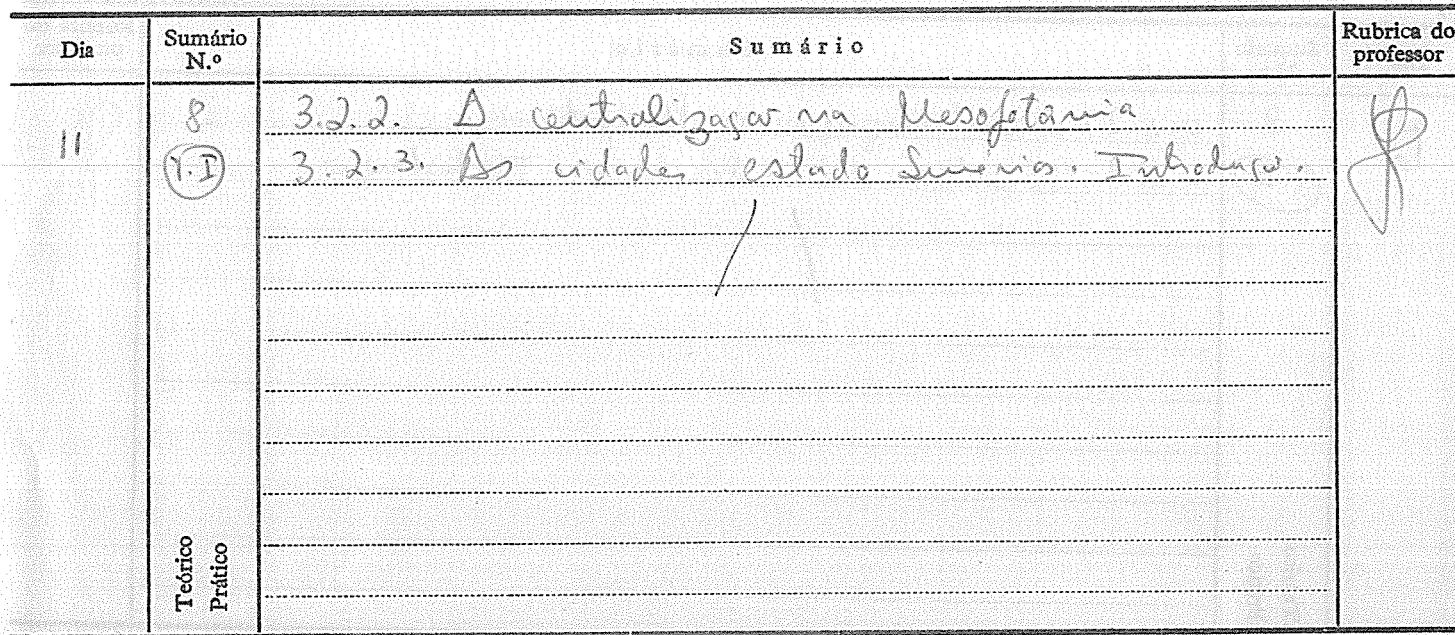 Dia Sumário N.º Sumário Rubrica do professor
11 8 3.2.2. A centralização na Mesopotâmia
(T.I) 3.2.3. As cidades estado Sumérias. Introdução.
Teórico
Prático